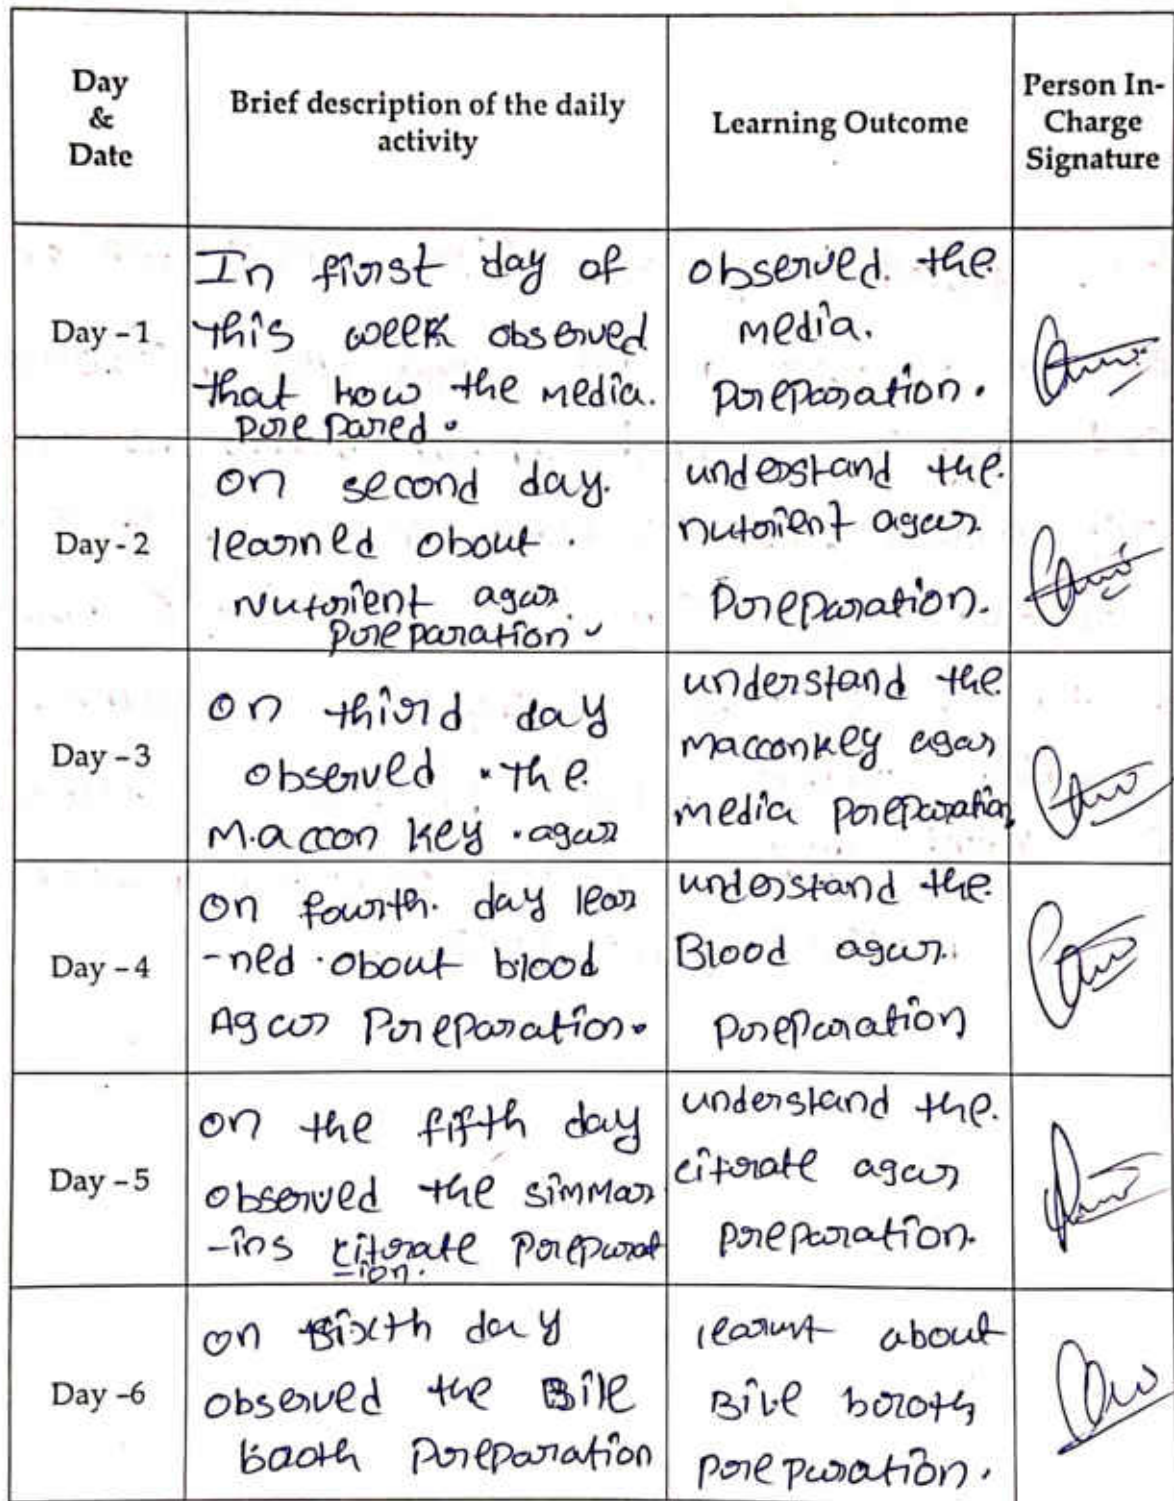 Day
&
Date
Brief description of the daily
activity
Learning Outcome
Person In-
Charge
Signature
Day - 1
In first day of
this week observed
that how the media.
prepared.
observed. the
media.
preparation.
Day - 2
on second day.
learned obout.
Nutrient agar
preparation.
understand the.
nutrient agar
preparation.
Day - 3
on third day
observed the
Maccon key agar
understand the
macconkey agar
media preparation
Day - 4
on fourth. day lear
-ned obout blood
Agar Preparation.
understand the.
Blood agar.
preparation
Day - 5
on the fifth day
observed the simmar
-ins citrate preparat
-ion.
understand the.
citrate agar
preparation.
Day -6
on sixth day
observed the Bile
baoth preparation
learnt about
Bile broth
preparation.